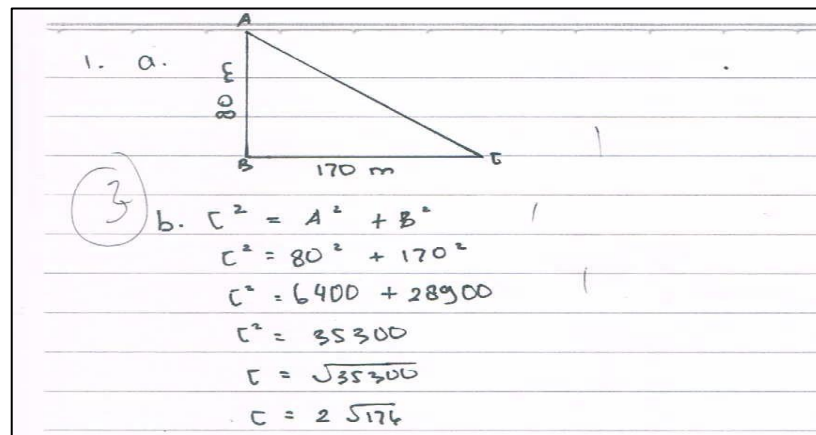 1. a.
A
80 m
B
170 m
C
3
b. C² = A² + B²
C² = 80² + 170²
C² = 6400 + 28900
C² = 35300
C = √35300
C = 2 √176